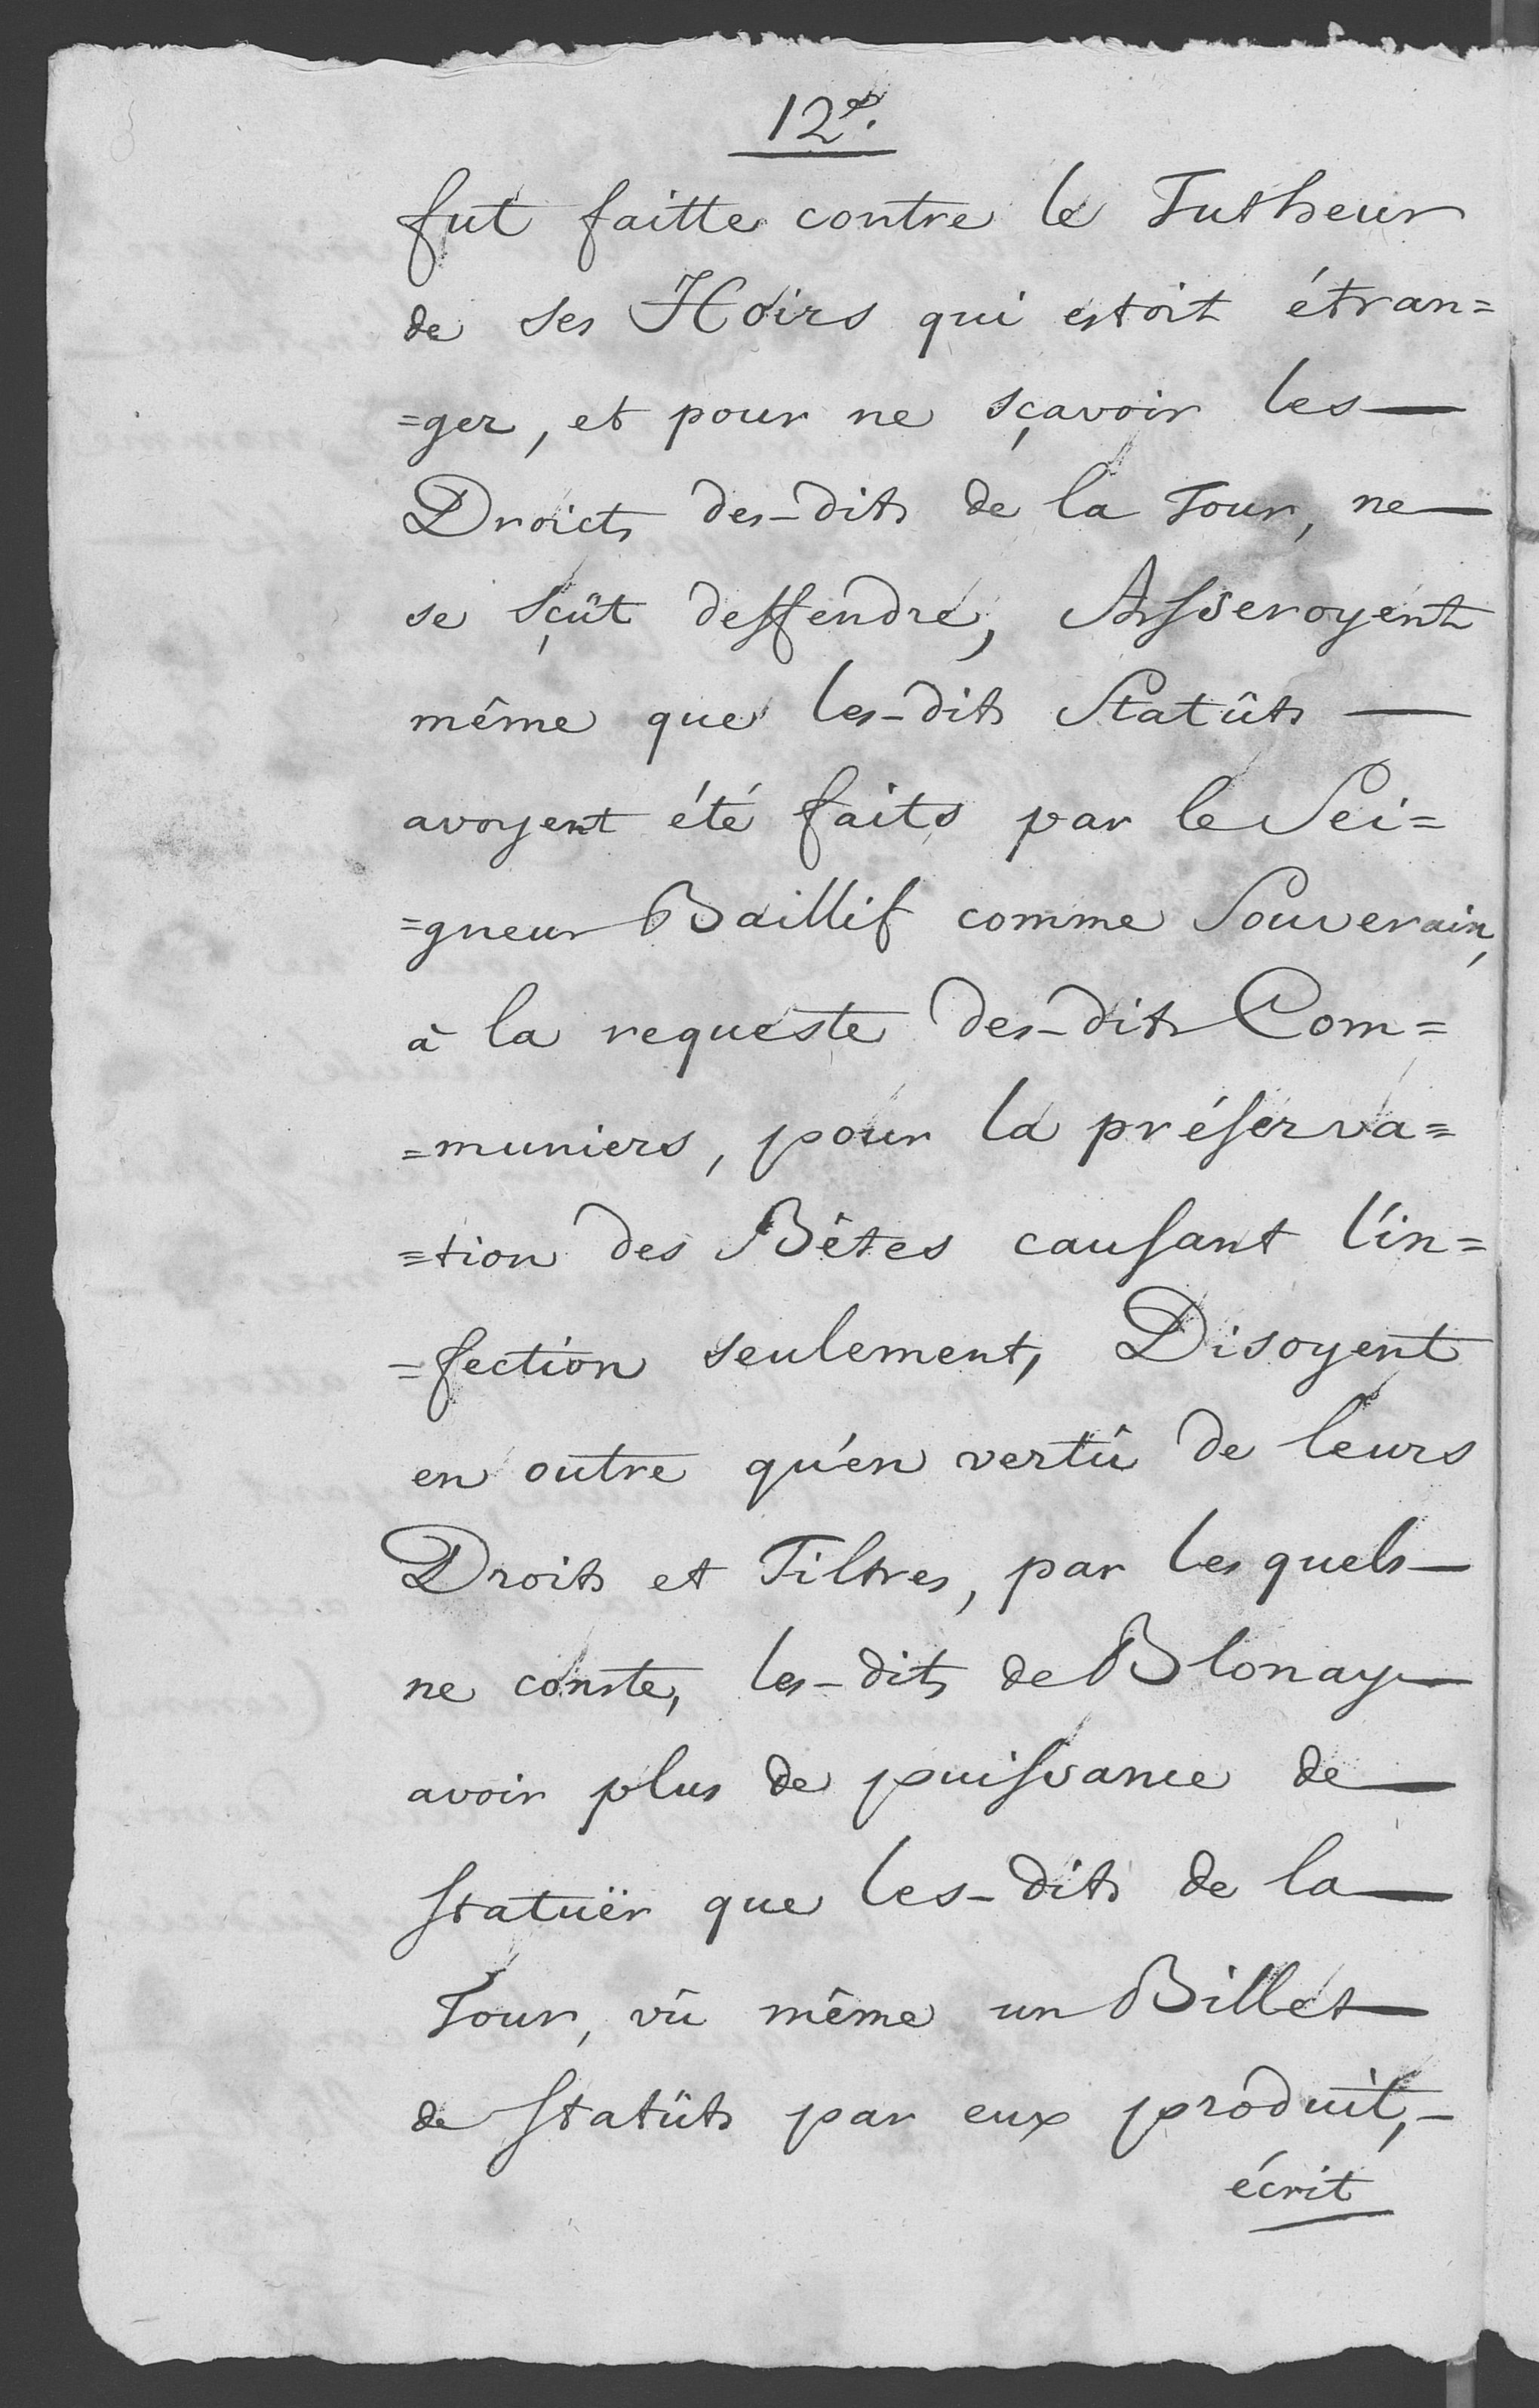 12e.
fut faitte contre le Tutheur
de ses Hoirs qui estoit étran=
=ger, et pour ne sçavoir les—
Droicts des-dits de la Tour, ne—
se sçût deffendre, Asseroyent
même que les-dits Statûts —
avoyent été faits par le Sei=
=gneur Baillif comme Souverain,
à la requeste des-dits Com=
=muniers, pour la préserva=
=tion des Bêtes causant l'in=
=fection seulement, Disoyent
en outre qu'en vertû de leurs
Droits et Tiltres, par les quels—
ne conste, les-dits de Blonay—
avoir plus de puissance de—
statuër que les-dits de la—
Tour, vû même un Billet—
de Statûts par eux produit,—
écrit